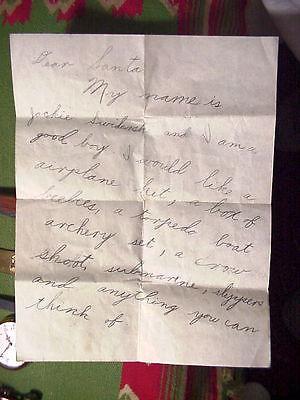 Dear Santa
My name is
Jackie and I am a
good boy I would like a
airplane kit, a box of
, a torpedo boat
archery set, a crow
shoot, submarine, slippers
and anything you can
think of.